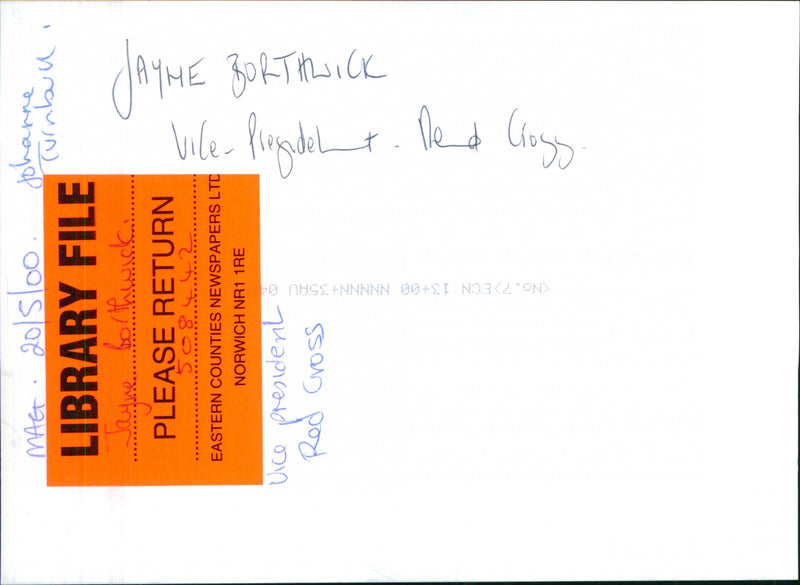 JAYME BORTHWICK
Vice-President - Red Cross.
Johanne
Turnbull.
MAG. 20/5/00.
LIBRARY FILE
Jayne borthwick.
PLEASE RETURN
508442
EASTERN COUNTIES NEWSPAPERS LTD
NORWICH NR1 1RE
Vice president
Red Cross
<No.7>ECN 13+00 NNNNN+35AU 04